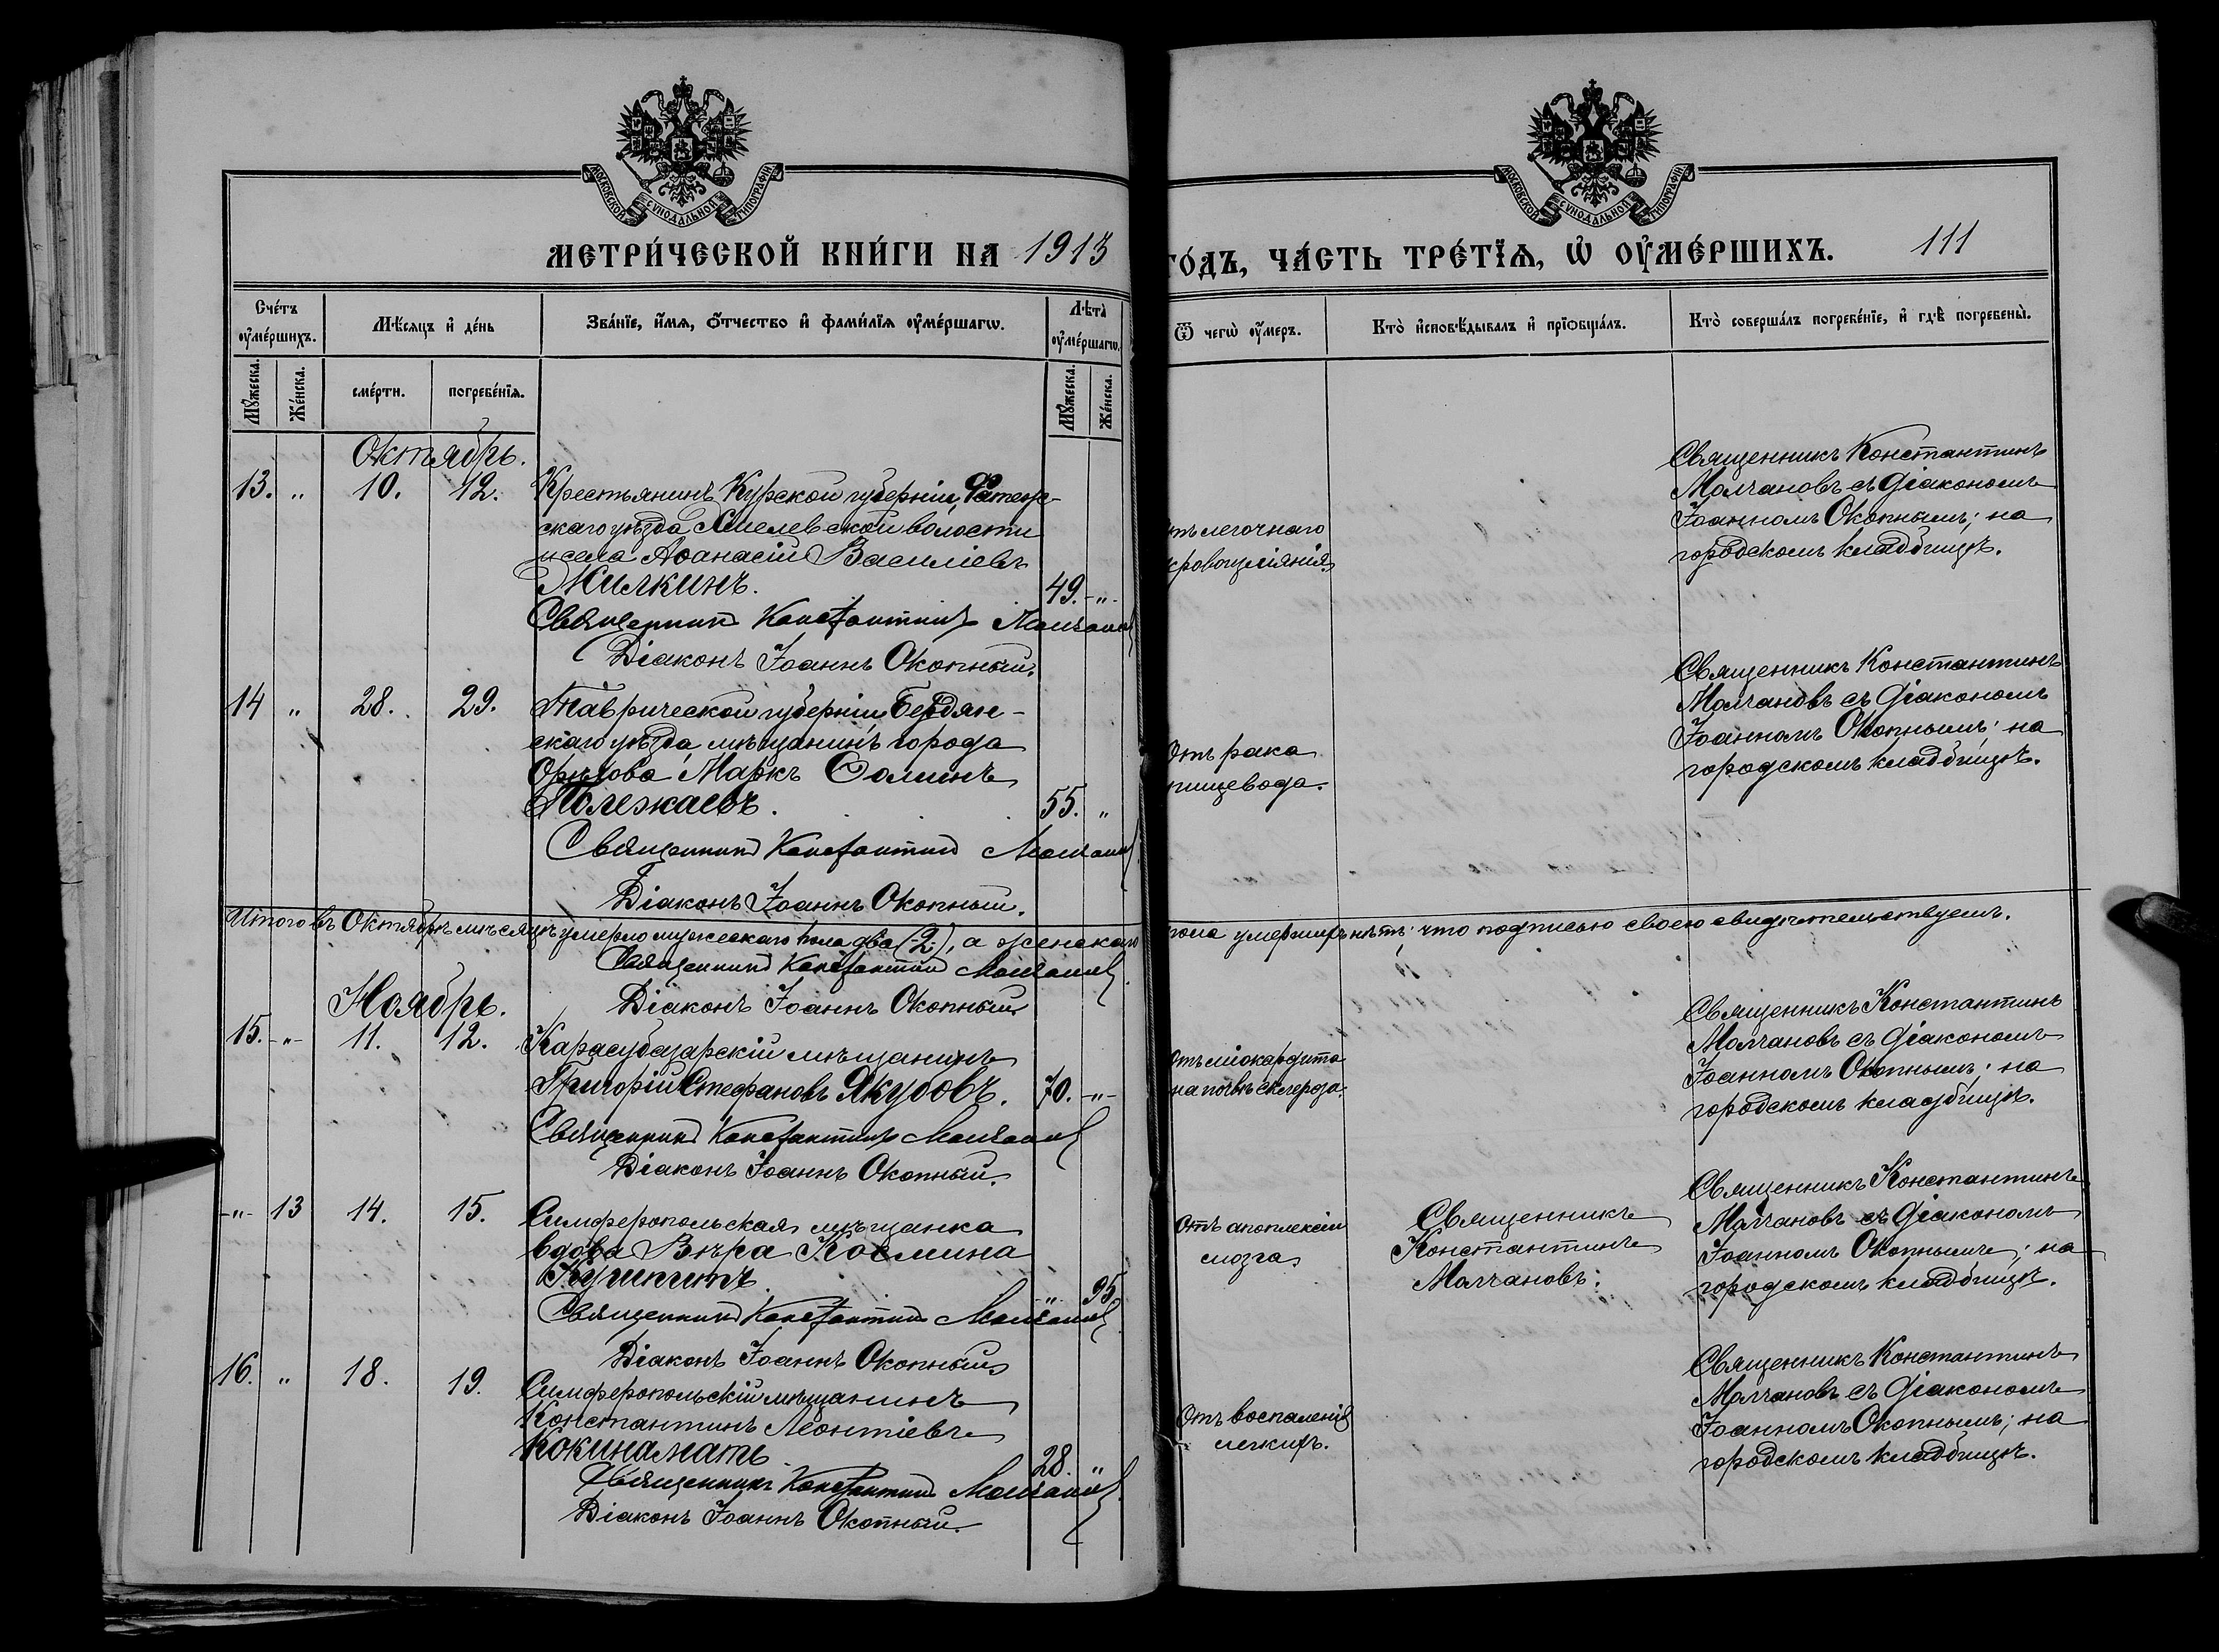 МОСКОВСКОЙ СѴНОДАЛЬНОЙ ТИПОГРАФІИ
МОСКОВСКОЙ СѴНОДАЛЬНОЙ ТИПОГРАФІИ
МЕТРИ́ЧЕСКОЙ КНИ́ГИ НА 1913
ГО́ДЪ, ЧА́СТЬ ТРЕ́ТЇѦ, Ѡ҆ ОУ҆МЕ́РШИХЪ. 111
Сче́тъ оу҆ме́ршихъ.
Мѣ́сяцъ и҆ де́нь
Зва́нїе, и҆́мѧ, ѻ҆́тчество и҆ фами́лїѧ оу҆ме́ршагѡ.
Лѣ́та оу҆ме́ршагѡ.
Ѿ чегѡ̀ оу҆́меръ.
Кто̀ и҆сповѣ́дывалъ и҆ прїѡбща́лъ.
Кто̀ соверша́лъ погребе́нїе, и҆ гдѣ̀ погребены̀.
Мꙋ́жеска. Же́нска. сме́рти. погребе́нїѧ. Мꙋ́жеска. Же́нска.
Октябрь.
13. „ 10. 12. Крестьянинъ Курской губерніи, Фатеж-
скаго уѣзда Хмелевской волости
и села Аѳанасій Василіевъ
Жилкинъ. 49. -„-
Священникъ Константинъ Молчановъ
Діаконъ Іоаннъ Окопный.
отъ легочнаго
кровоизліянія.
Священникъ Константинъ
Молчановъ съ діакономъ
Іоанномъ Окопнымъ; на
городскомъ кладбищѣ.
14 „ 28. 29. Таврической губерніи Бердян-
скаго уѣзда, мѣщанинъ города
Орѣхова Маркъ Ѳоминъ
Полежаевъ. 55. „
Священникъ Константинъ Молчановъ
Діаконъ Іоаннъ Окопный.
Отъ рака
пищевода.
Священникъ Константинъ
Молчановъ съ діакономъ
Іоанномъ Окопнымъ; на
городскомъ кладбищѣ.
Итого въ Октябрѣ мѣсяцѣ умерло мужескаго пола два (2), а женскаго
пола умершихъ нѣтъ; что подписью своею свидѣтельствуемъ.
Священникъ Константинъ Молчановъ
Діаконъ Іоаннъ Окопный
Ноябрь.
15. -„- 11. 12. Карасубазарскій мѣщанинъ
Григорій Стефановъ Якубовъ. 70. -„-
Священникъ Константинъ Молчановъ
Діаконъ Іоаннъ Окопный.
Отъ міокардита
на почвѣ склероза.
Священникъ Константинъ
Молчановъ съ діакономъ
Іоанномъ Окопнымъ; на
городскомъ кладбищѣ.
-„- 13 14. 15. Симферопольская мѣщанка
вдова Вѣра Космина
„ 95
Священникъ Константинъ Молчановъ
Діаконъ Іоаннъ Окопный
Отъ апоплексіи
мозга
Священникъ
Константинъ
Молчановъ.
Священникъ Константинъ
Молчановъ съ діакономъ
Іоанномъ Окопнымъ; на
городскомъ кладбищѣ.
16. „ 18. 19. Симферопольскій мѣщанинъ
Константинъ Леонтіевъ
Кокинамать. 28. „
Священникъ Константинъ Молчановъ
Діаконъ Іоаннъ Окопный.
Отъ воспаленія
легкихъ.
Священникъ Константинъ
Молчановъ съ діакономъ
Іоанномъ Окопнымъ; на
городскомъ кладбищѣ.